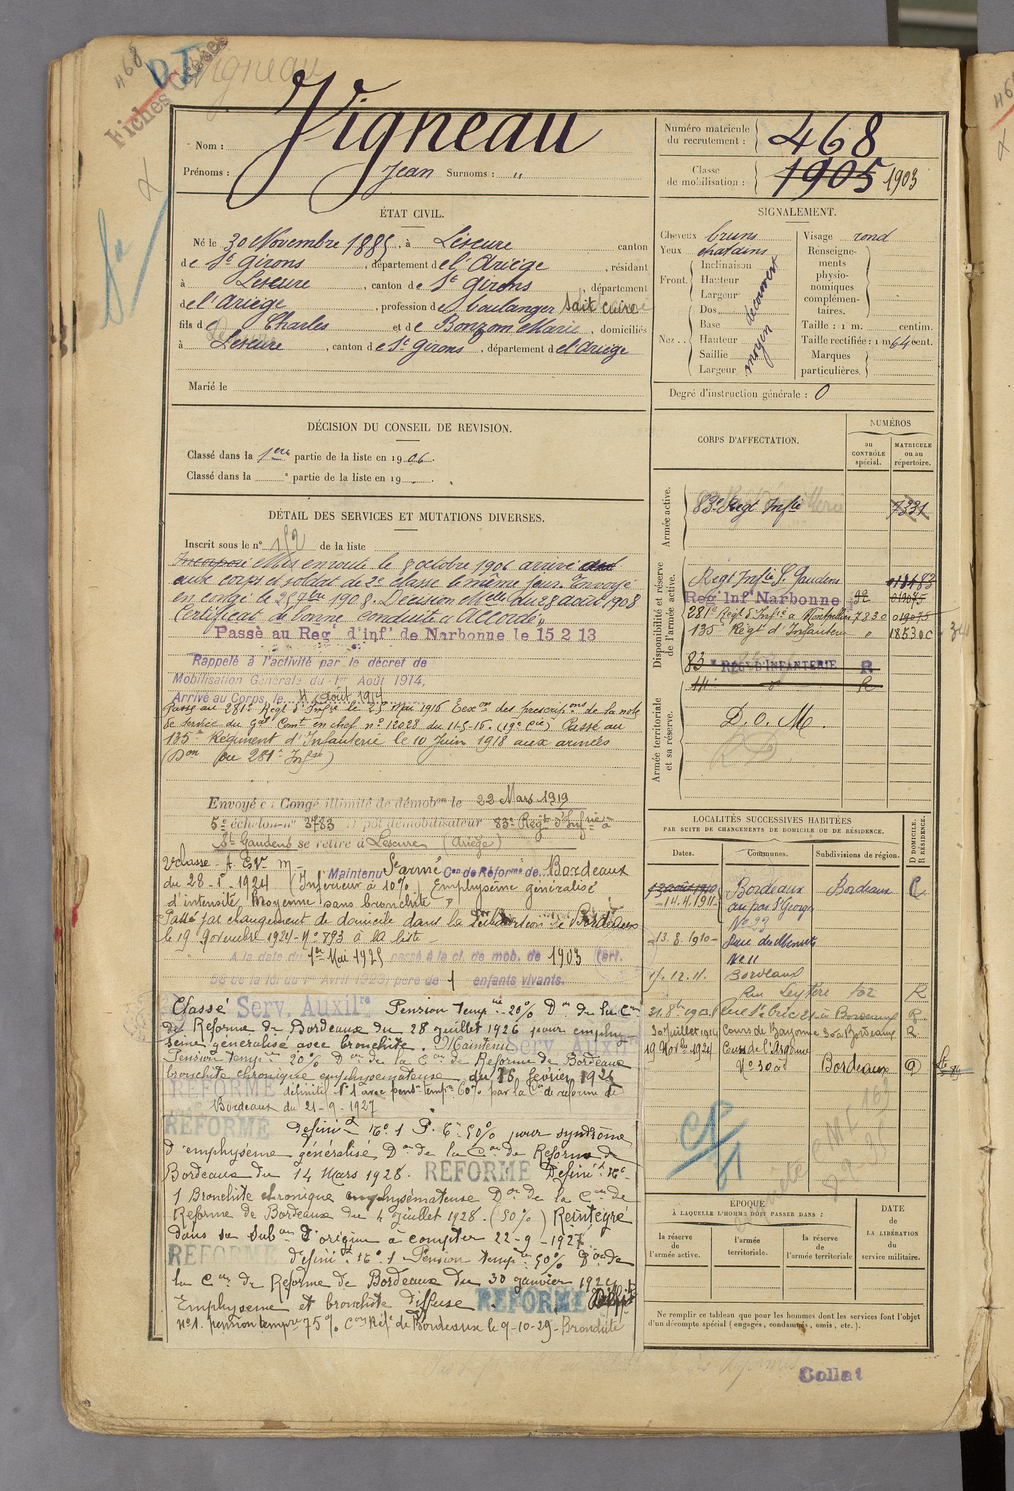 468
DT
Vigneau
Fiches Croisées
Nom : Vigneau
Prénoms : Jean Surnoms : "
Numéro matricule du recrutement : 468
Classe de mobilisation : 1905 1903
ÉTAT CIVIL.
Né le 30 Novembre 1885, à Lescure canton
de St Girons, département de l'Ariège, résidant
à Lescure, canton de St Girons, département
de l'Ariège, profession de boulanger sait cuire
fils de Charles et de Bonzom Marie, domiciliés
à Lescure, canton de St Girons, département de l'Ariège
Marié le
SIGNALEMENT.
Cheveux bruns
Yeux chatains
Front
Inclinaison
Hauteur
Largeur
découvert
Nez
Dos
Base
Hauteur
Saillie
Largeur
moyen
Visage rond
Renseignements physionomiques complémentaires.
Taille : 1 m. centim.
Taille rectifiée : 1 m 64 cent.
Marques particulières.
Degré d'instruction générale : 0
DÉCISION DU CONSEIL DE REVISION.
Classé dans la 1ère partie de la liste en 1906.
Classé dans la e partie de la liste en 19 .
DÉTAIL DES SERVICES ET MUTATIONS DIVERSES.
Inscrit sous le n° 152 de la liste
Incorporé Mis en route le 8 octobre 1906 arrivé
aux corps et soldat de 2e classe le même jour. Envoyé
en congé le 25 7bre 1908. Décision Mlle du 28 août 1908
Certificat de bonne conduite "Accordé"
Passé au Reg. d'inf. de Narbonne le 15 2 13
Rappelé à l'activité par le décret de
Mobilisation Générale du 1er Août 1914,
Arrivé au Corps le 4 Août 1914
Passé au 281e Régt d'Infie le 25 Mai 1916 Exon des prescriptions de la note
de service du Gal Cont en chef n° 12028 du 11-5-16. Passé au
135e Régiment d'Infanterie le 10 Juin 1918 aux armées
(Don du 281e Infie)
Envoyé en Congé illimité de démobon le 22 Mars 1919
5e échelon n° 3783 Dépôt démobilisateur 83e Régt d'Infrie à
St Gaudens se retire à Lescure (Ariège)
Maintenu St armé Con de Réforme de Bordeaux
du 28-1-1924 (Inférieur à 10%) Emphysème généralisé
d'intensité moyenne sans bronchite
Passé par changement de domicile dans la subdivision de Bordeaux
le 19 Novembre 1924 N° 893 à la liste
A la date du 1er Mai 1925 passé à la cl. de mob. de 1903 (art.
58 de la loi du 1er Avril 1923) père de 1 enfants vivants.
Classé Serv. Auxilre Pension tempre 20% Don de la Con
de Réforme de Bordeaux du 28 juillet 1926 pour emphy-
sème généralisé avec bronchite. Maintenu Serv. Auxilre
Pension tempre 20% Don de la Con de Réforme de Bordeaux
bronchite chronique emphysémateuse du 16 février 1926
REFORME définitif N° 1 avec pension tempre 60% par la Con de réforme de
Bordeaux du 21-9-1927
REFORME définit N° 1 P. T. 50% pour syndrome
d'emphysème généralisé Don de la Con de Réforme de
Bordeaux du 14 Mars 1928. REFORME Définit N°
1 Bronchite chronique emphysémateuse Don de la Con de
Réforme de Bordeaux du 4 juillet 1928. (50%) Réintégré
dans sa subon d'origine à compter 22-9-1927
REFORME définit N° 1 Pension tempre 50% Don de
la Con de Réforme de Bordeaux du 30 janvier 1929
Emphysème et bronchite diffuse. REFORME
n° 1. pension tempre 75% Con Réfe de Bordeaux le 9-10-29 - Bronchite
CORPS D'AFFECTATION.
NUMÉROS
au CONTRÔLE spécial.
MATRICULE ou au répertoire.
Armée active.
83e Régt Infie 7331
Disponibilité et réserve de l'armée active.
Régt Infie St Gaudens 01848
Reg Inf Narbonne
281e Régt d'Infie à Montpellier 7830
135e Régt d'Infanterie " 18530C
83e REGt D'INFANTERIE R
R
Armée territoriale et sa réserve.
D. o. M.
LOCALITÉS SUCCESSIVES HABITÉES
PAR SUITE DE CHANGEMENTS DE DOMICILE OU DE RÉSIDENCE.
Dates. Communes. Subdivisions de région. D DOMICILE. R RÉSIDENCE.
14.4.1911 Bordeaux Bordeaux
N° 23
13.8.1910 Rue des Menuts
N° 11
15.12.11. Bordeaux
Rue Leyteire 102 R
Bordeaux R
30 Juillet 1914 Cours de Bayonne Bordeaux R
19 Novbre 1924 Cours de l'Argonne
N° 30 Bordeaux D
ÉPOQUE
À LAQUELLE L'HOMME DOIT PASSER DANS :
la réserve de l'armée active.
l'armée territoriale.
la réserve de l'armée territoriale
DATE DE LA LIBÉRATION du service militaire.
Ne remplir ce tableau que pour les hommes dont les services font l'objet
d'un décompte spécial (engagés, condamnés, omis, etc.).
Collat